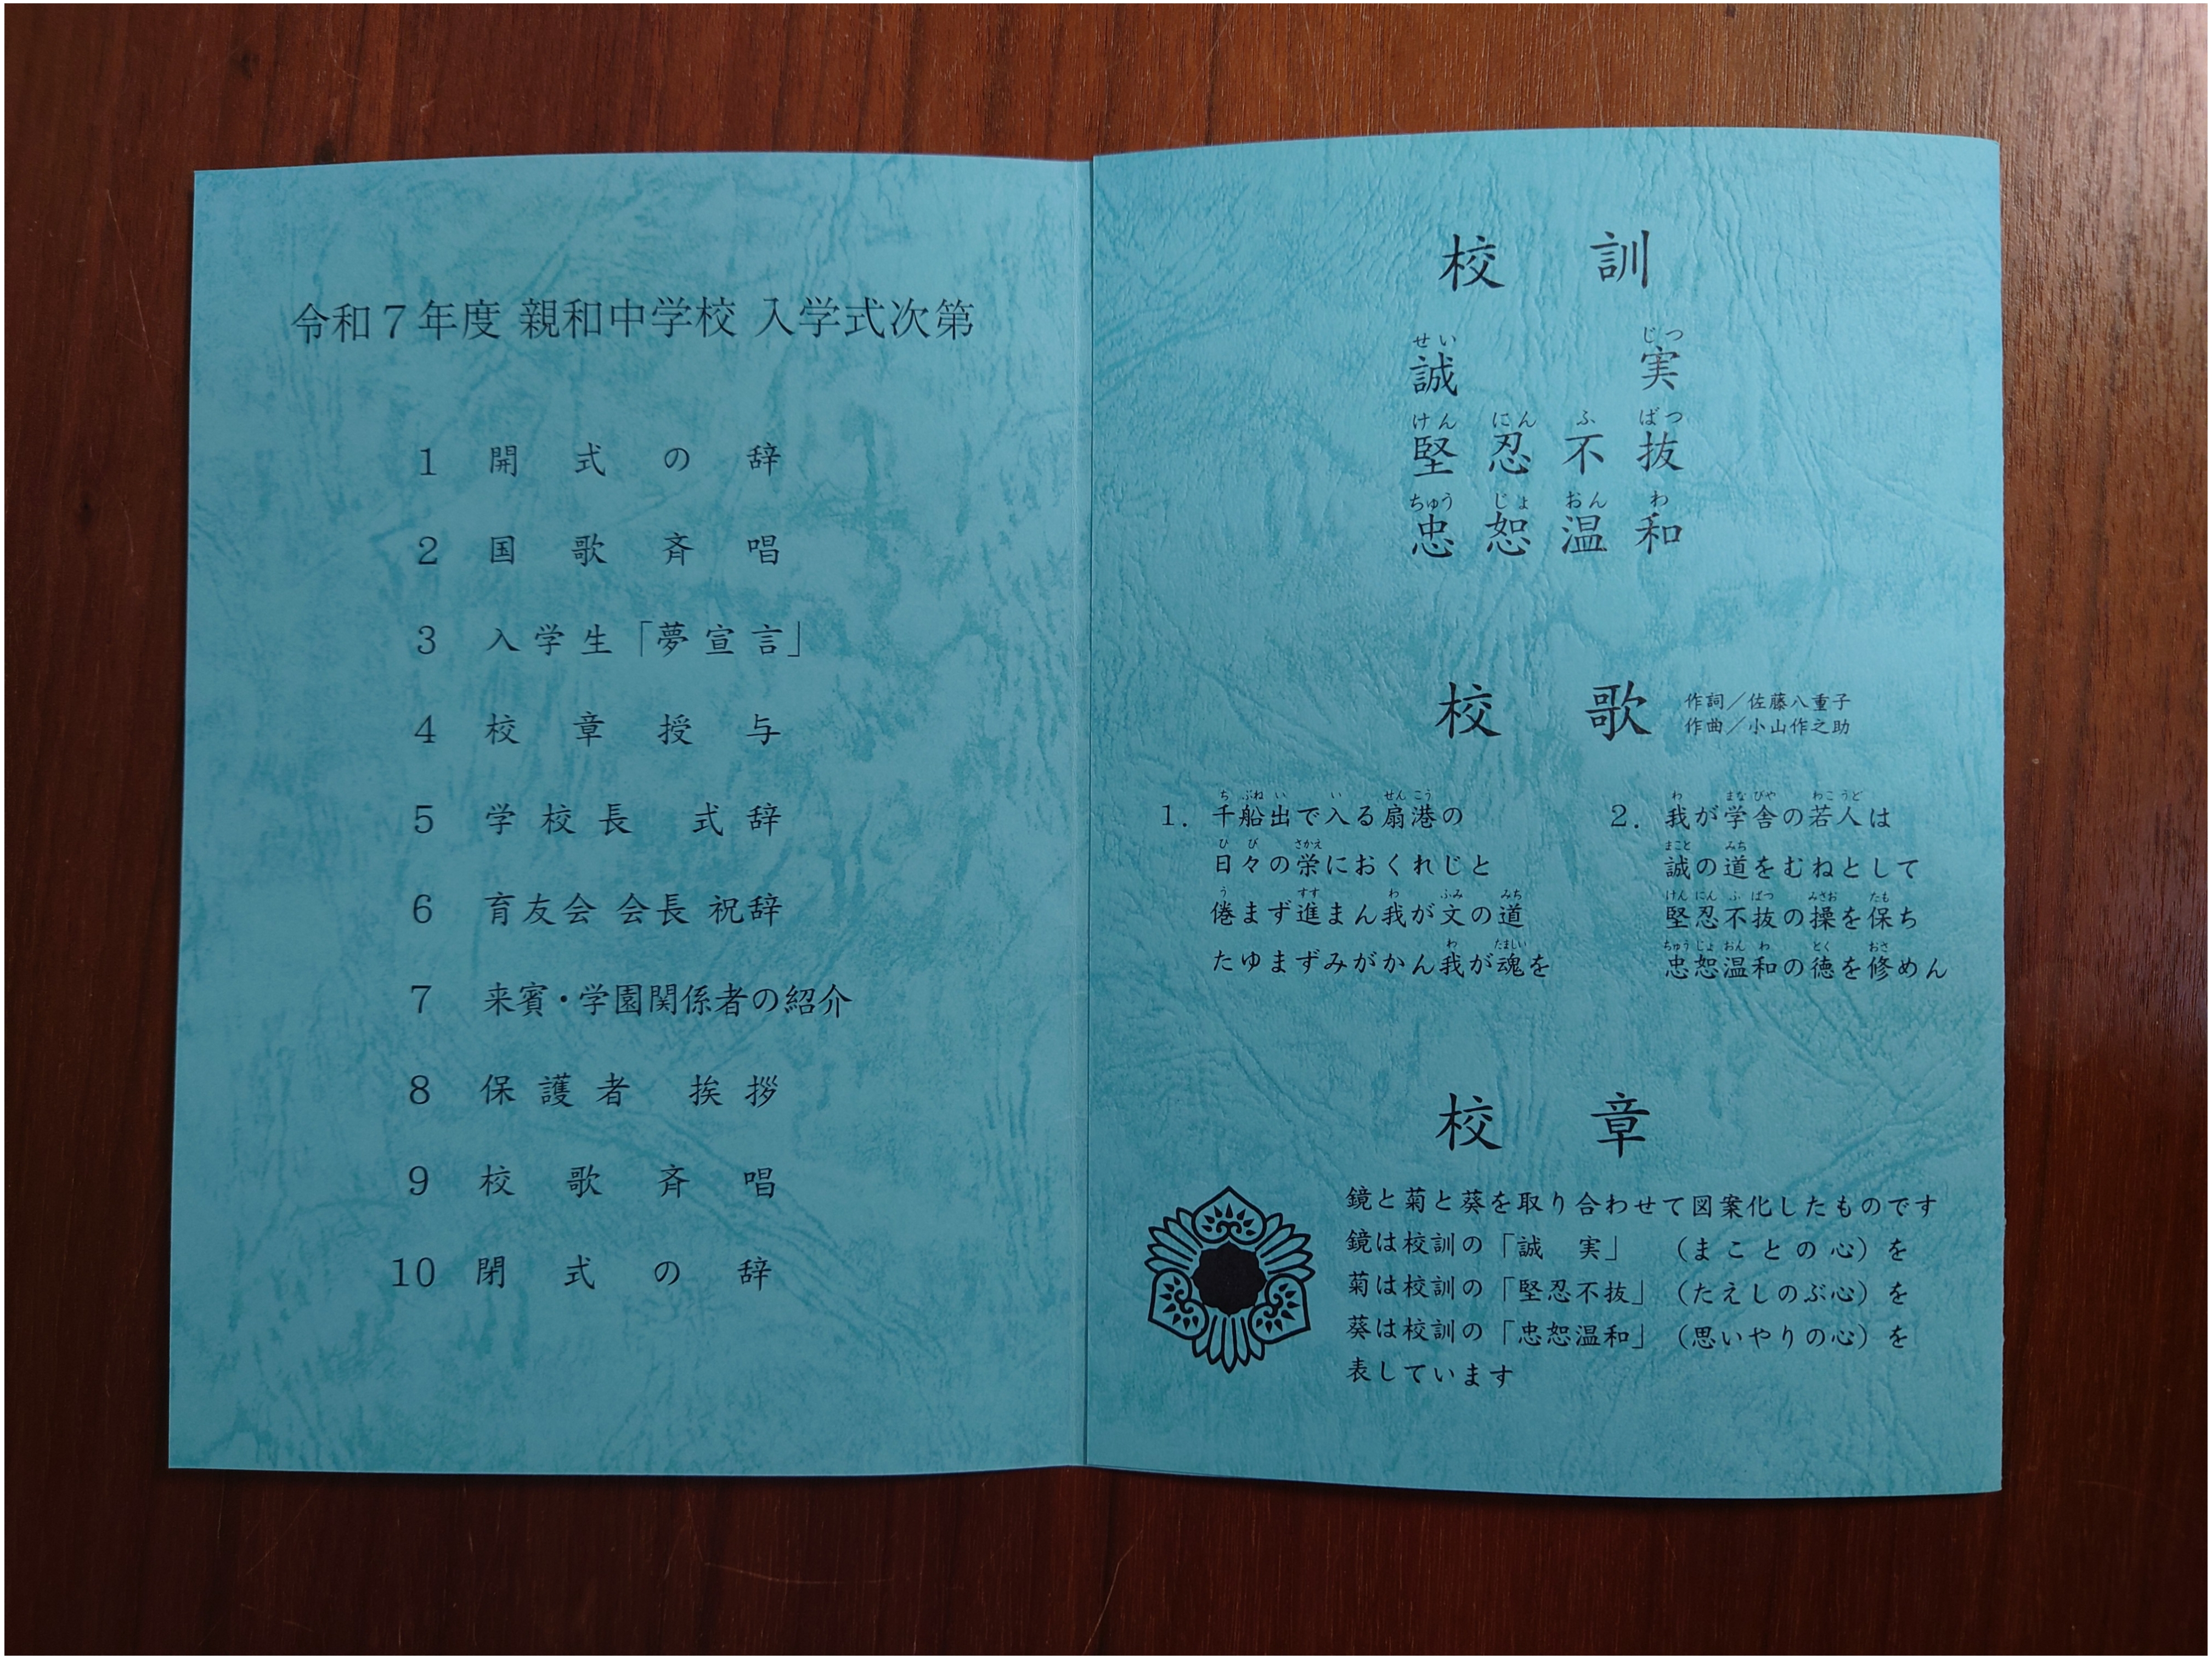 令和7年度 親和中学校 入学式次第
1 開式の辞
2 国歌斉唱
3 入学生「夢宣言」
4 校章授与
5 学校長 式辞
6 育友会 会長 祝辞
7 来賓・学園関係者の紹介
8 保護者 挨拶
9 校歌斉唱
10 閉式の辞
校訓
せい じつ
誠実
けん にん ふ ばつ
堅忍不抜
ちゅう じょ おん わ
忠恕温和
校歌
作詞／佐藤八重子
作曲／小山作之助
ち ぶね い い せん こう
1. 千船出で入る扇港の
ひ び さかえ
日々の栄におくれじと
う すす わ ふみ みち
倦まず進まん我が文の道
わ たましい
たゆまずみがかん我が魂を
わ まな びや わこ うど
2. 我が学舎の若人は
まこと みち
誠の道をむねとして
けん にん ふ ばつ みさお たも
堅忍不抜の操を保ち
ちゅう じょ おん わ とく おさ
忠恕温和の徳を修めん
校章
鏡と菊と葵を取り合わせて図案化したものです
鏡は校訓の「誠 実」（まことの心）を
菊は校訓の「堅忍不抜」（たえしのぶ心）を
葵は校訓の「忠恕温和」（思いやりの心）を
表しています